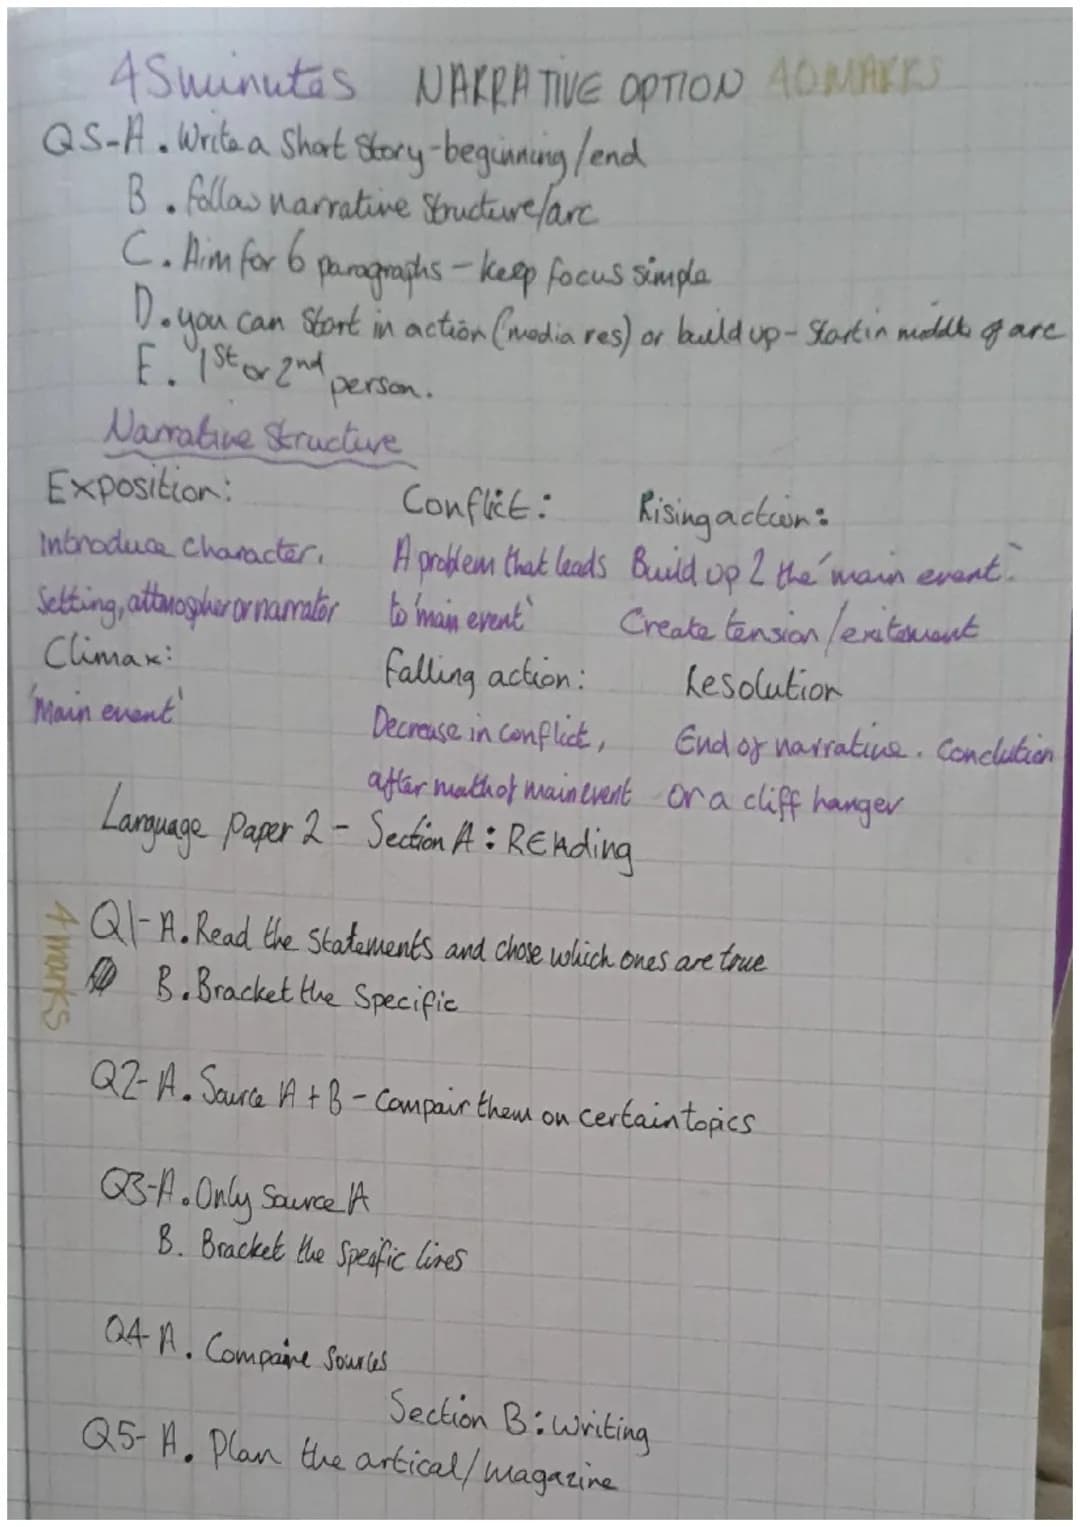 45minutes NARRATIVE OPTION 40MARKS
Q5-A. Write a Short Story-beginning/end
B. follow narrative Structure/arc
C. Aim for 6 paragraphs - keep focus simple
D. you can Start in action (media res) or build up - Start in middle of arc
E. 1st or 2nd person.
Narrative Structure
Exposition:
Introduce character,
Setting, attmospher or narrator
Conflict:
A problem that leads
to 'main event'
Rising action:
Build up 2 the 'main event'.
Create tension/exitement
Climax:
'Main event'
falling action:
Decrease in conflict,
after math of main event
Resolution
End of narrative. Conclution
or a cliff hanger
Language Paper 2 - Section A: REAding
4 marks
Q1-A. Read the Statements and chose which ones are true
B. Bracket the Specific
Q2-A. Source A + B - Compair them on certain topics
Q3-A. Only Source A
B. Bracket the Speafic lines
Q4-A. Compaire Sources
Section B: Writing
Q5-A. Plan the artical/magazine